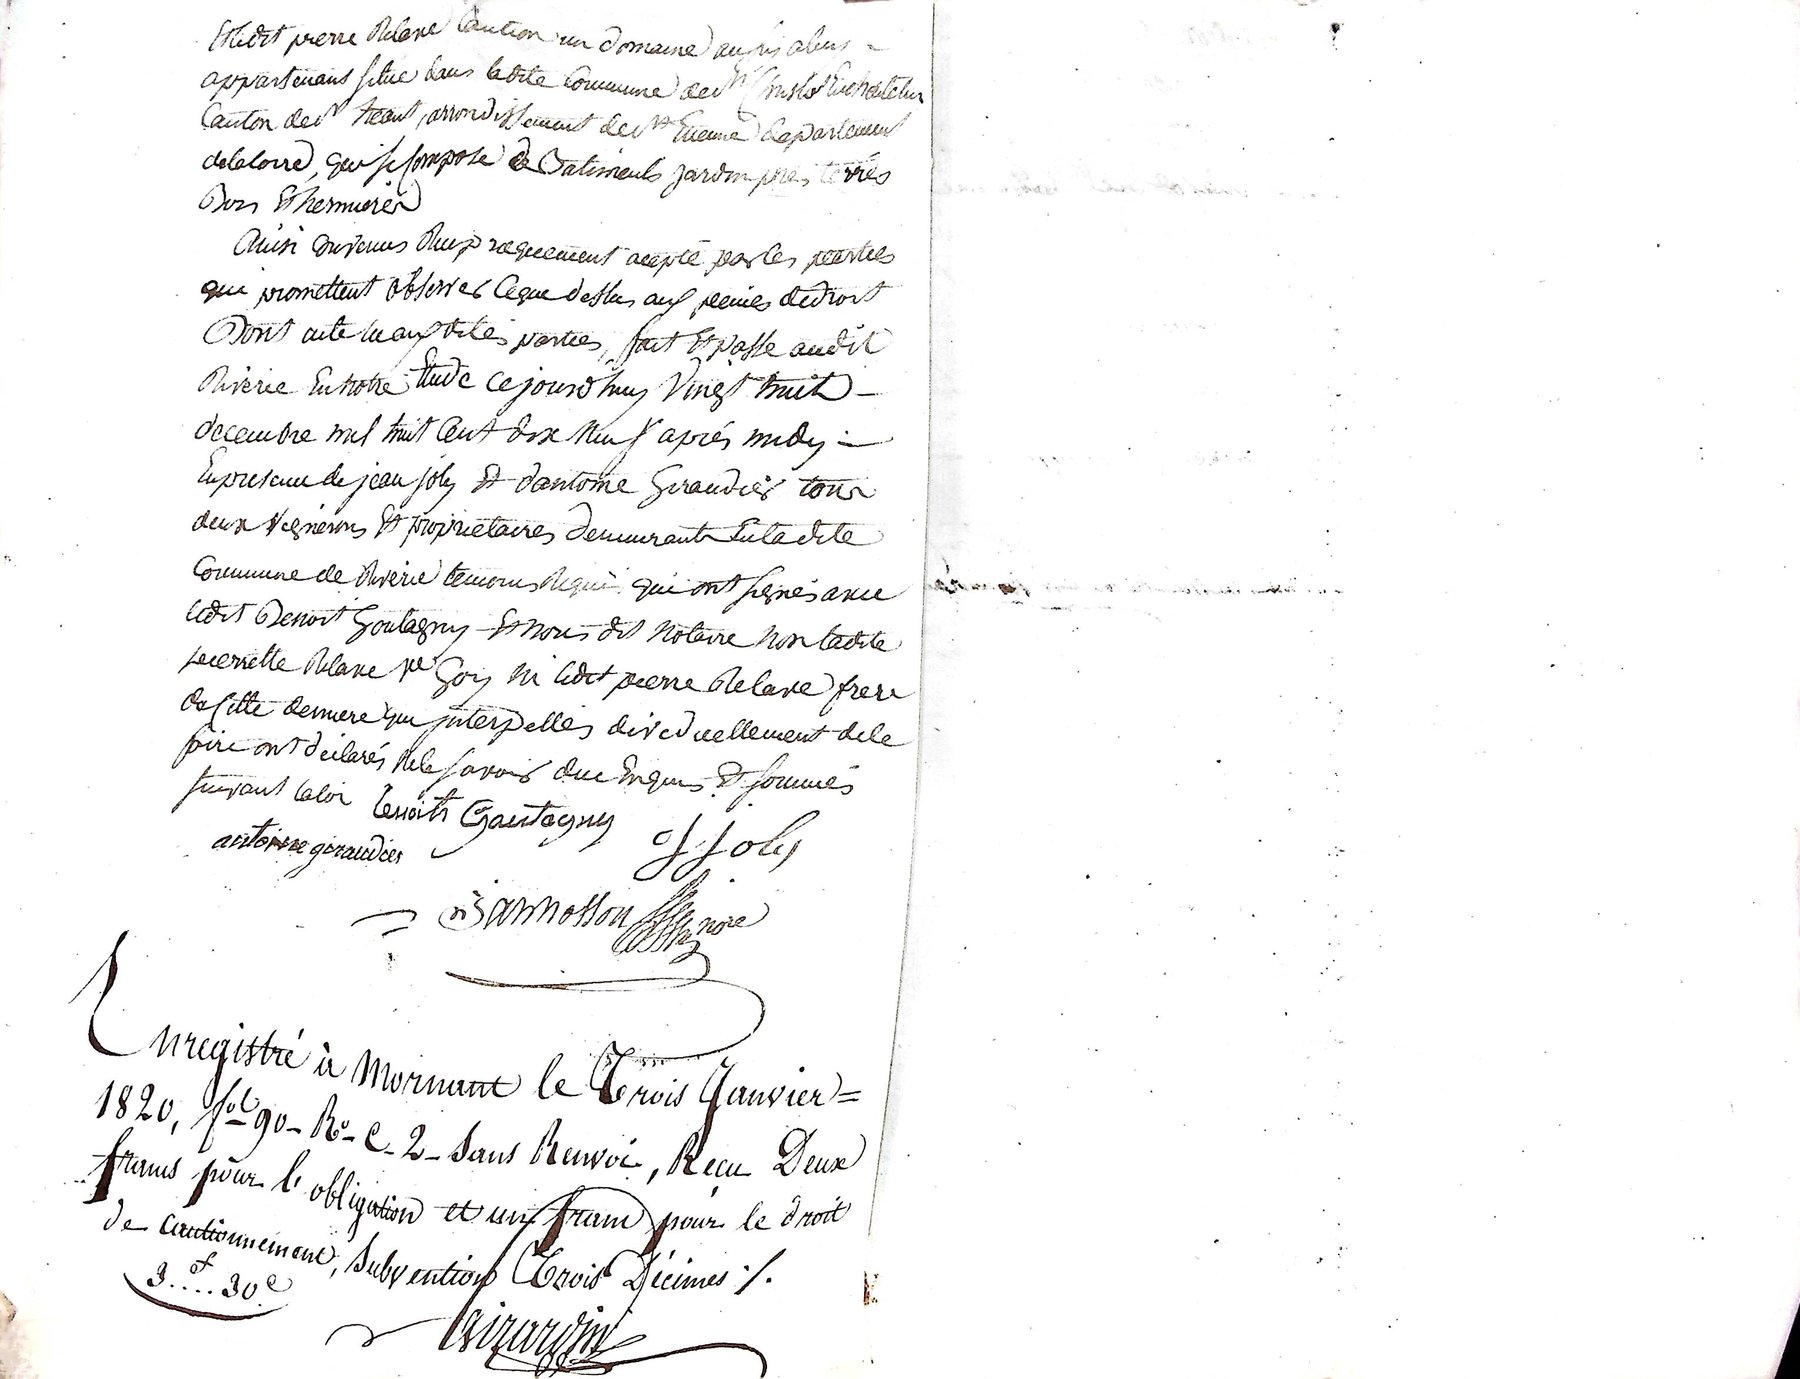 Et ledit pierre Relave Caution un domaine aussy aluy
appartenant situé dans ladite Commune de st Christot Enchatelux
Canton de st heant, arrondissement de st Etienne Departement
delaloire, qui se Compose de Batiments jardin pres terres
Bois Et hermieres
Ainsi Convenus Reciproquement accepté par les parties
qui promettent observer Ceque dessus aux peines dedroit
Dont acte lu auxdites parties, fait Et passé audit
Riverie En notre Etude Cejourd'huy Vingt huit
decembre mil huit Cent dix Neuf après midy
En presence de jean joly Et d'antoine Giraudier tous
deux Vignerons Et propriétaires demeurants Enladite
Commune de Riverie temoins Requis qui ont signés avec
ledit Benoit Goutagny Et Nous dit Notaire Non ladite
pierrette Relave ve Goy Ni ledit pierre Relave frere
de Cette derniere qui interpellés diveduellement dele
faire ont déclarés Nele savoir duc Enquis Et sommés
suivant laloi Benoit Goutagny
antoine giraudier J Joly
Jannosson nore
Enregistré à Mornant le Trois Janvier
1820, fol 90 Ro C. 2 Sans Renvoi, Reçu Deux
francs pour l'obligation et un franc pour le droit
de Cautionnement, Subvention Trois Décimes ./.
3f....30c
Girardin